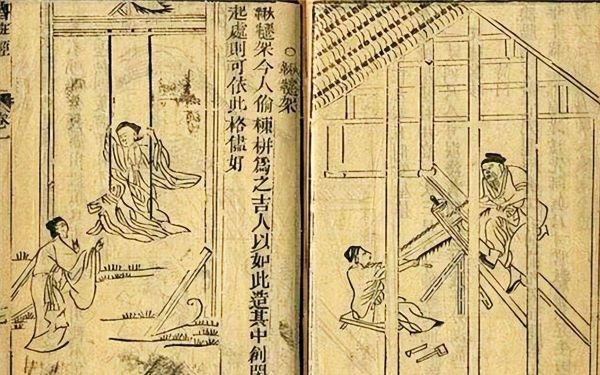 ○鞦韆架
鞦韆架今人偷棟栟爲之吉人以如此造其中創
起處則可依此格儘好
班經
卷一
七